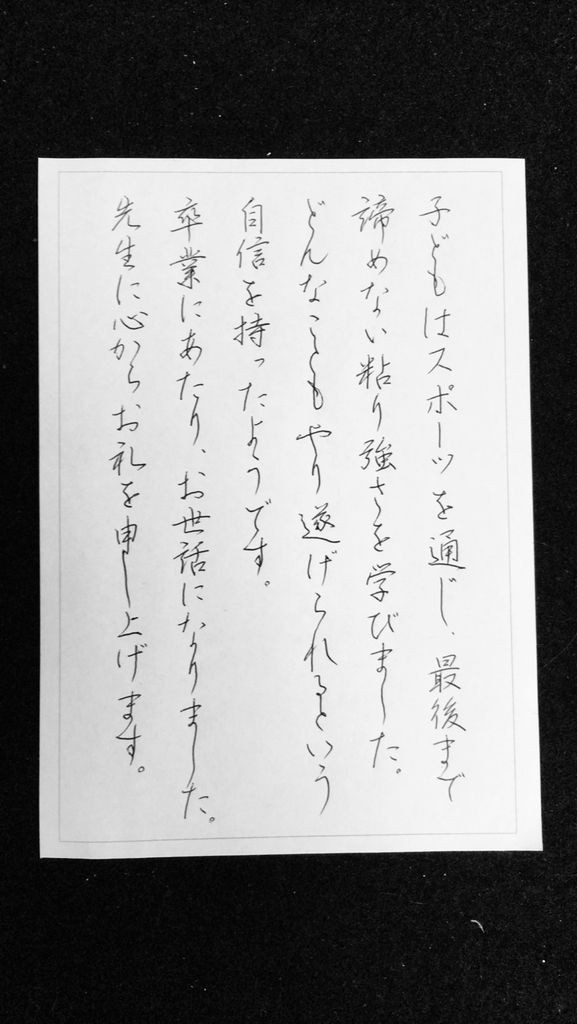 子どもはスポーツを通じ、最後まで
諦めない粘り強さを学びました。
どんなこともやり遂げられるという
自信を持ったようです。
卒業にあたり、お世話になりました。
先生に心からお礼を申し上げます。